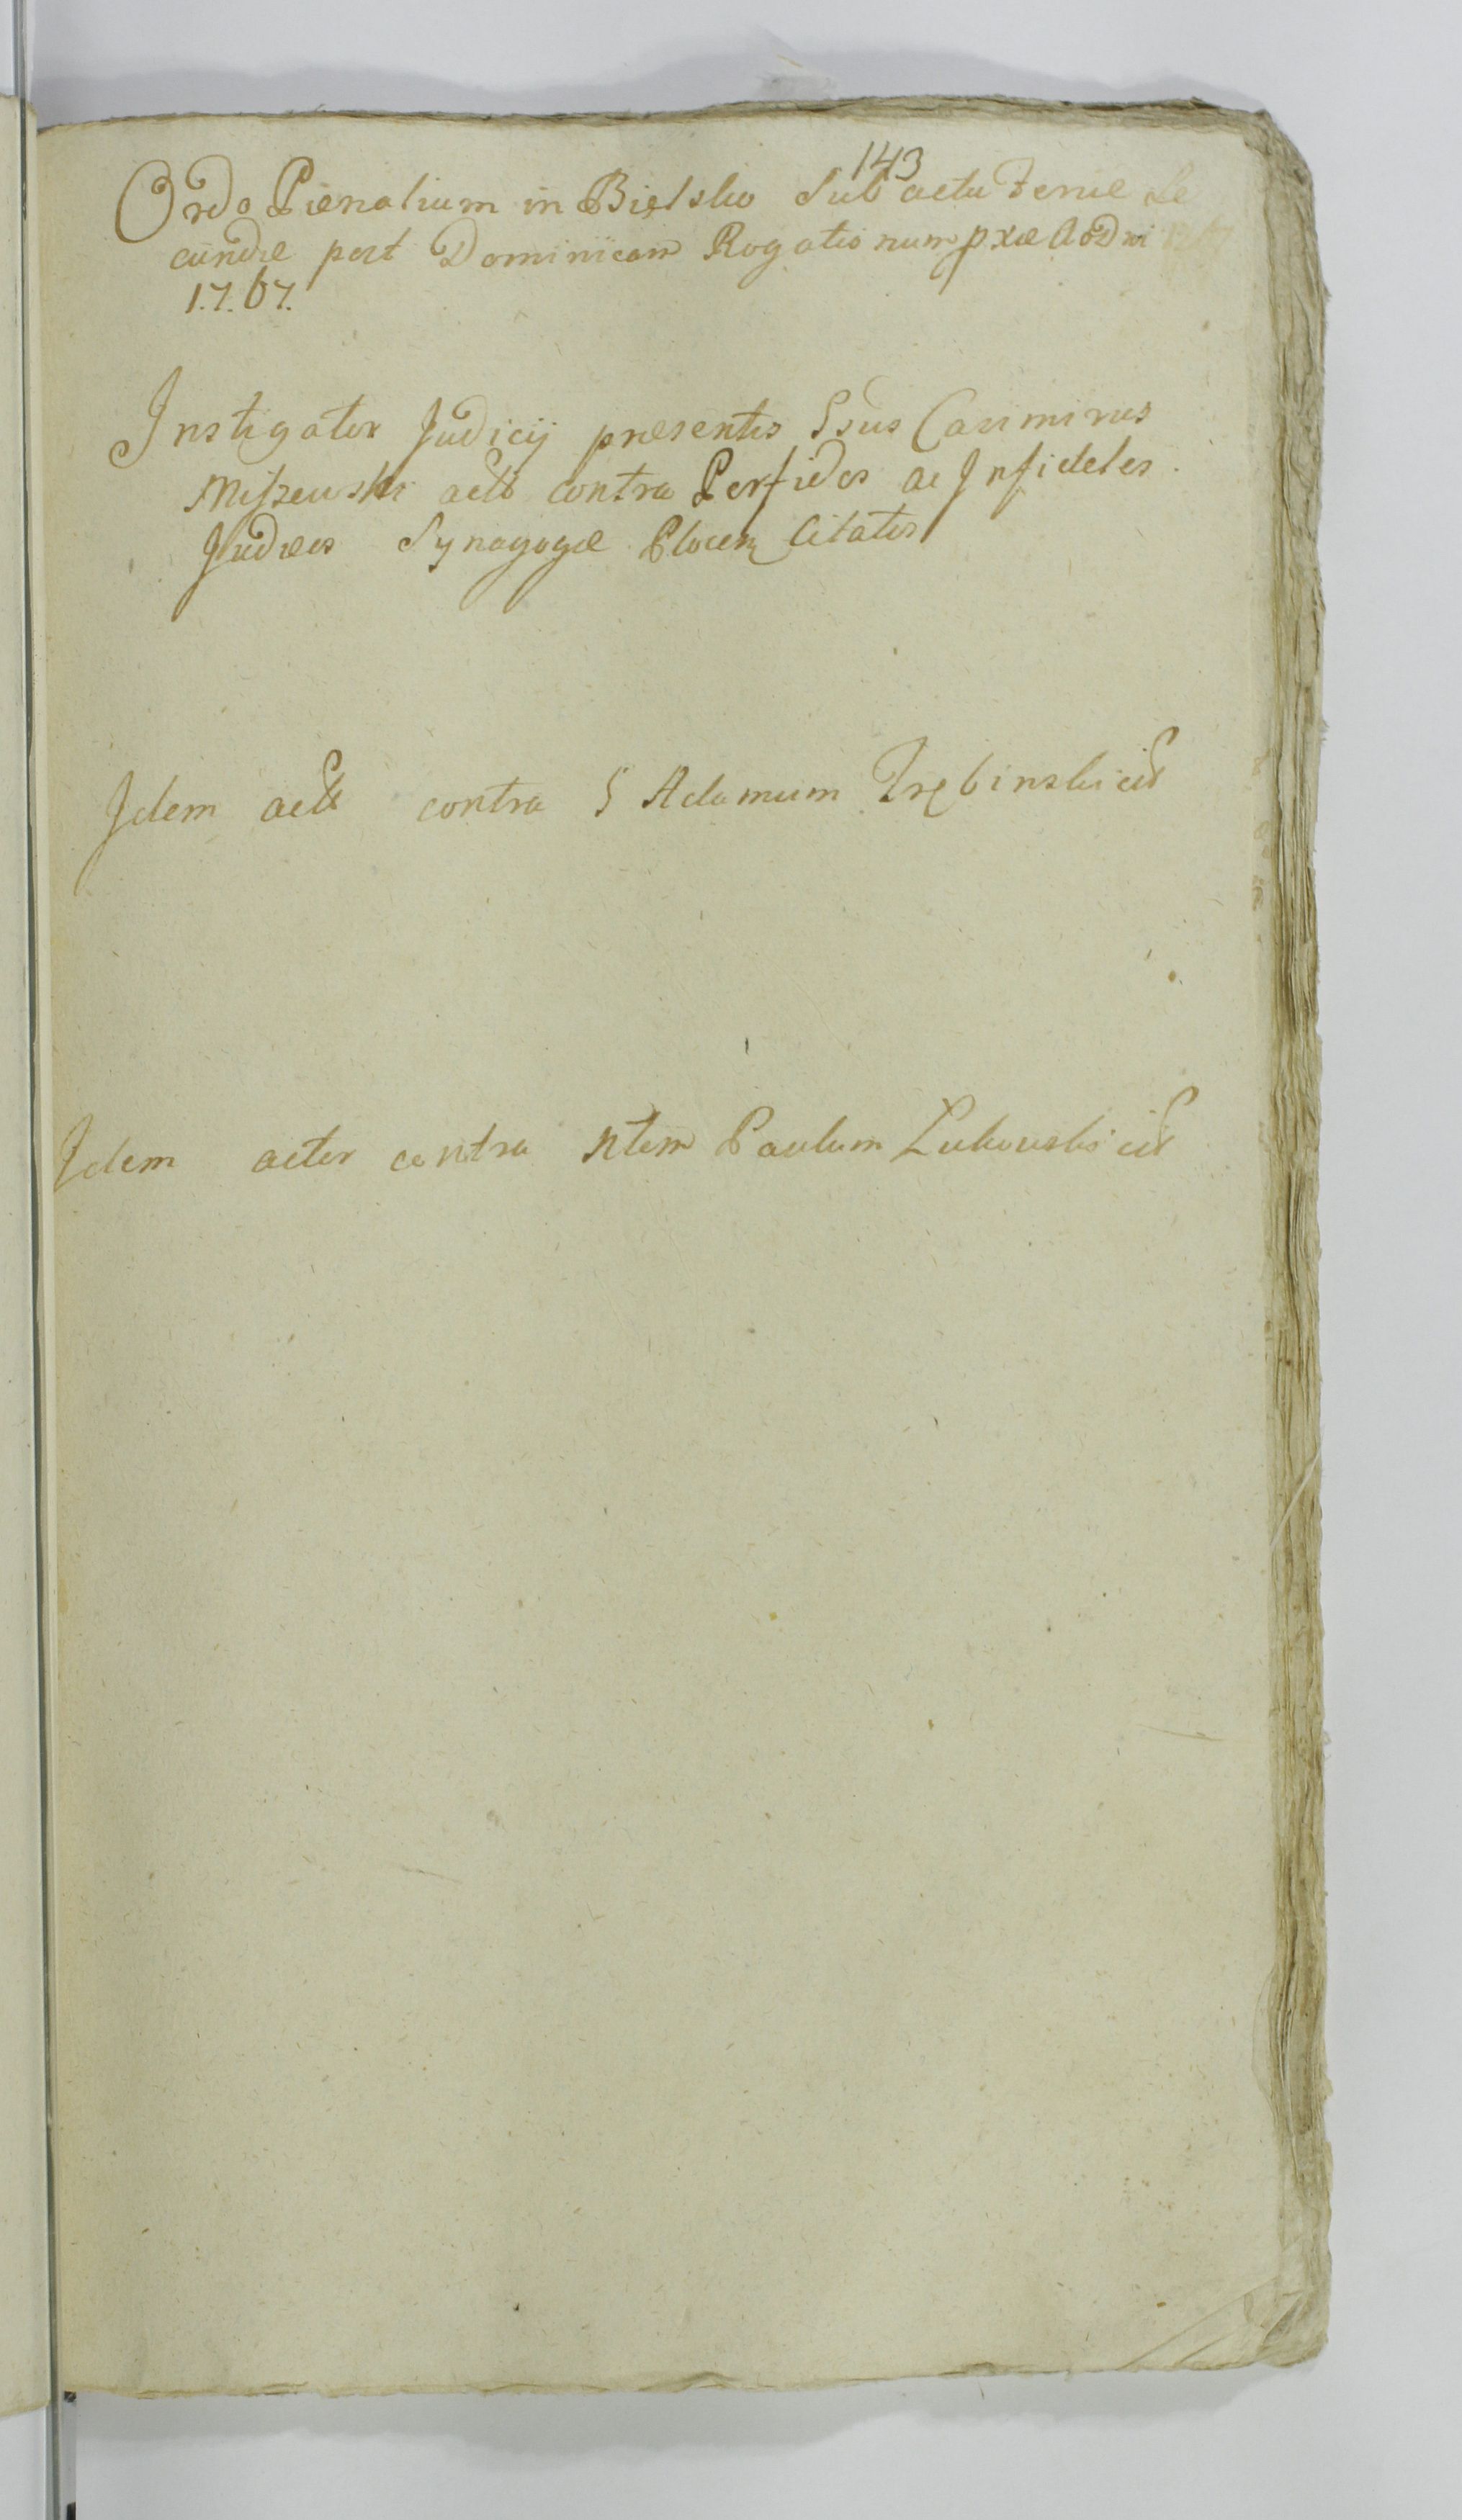 143
Ordo Pienalium in Bielsko Sub actu Feriæ Se
cundæ post Dominicam Rogationum pxæ AoDni
1.7.67.
Instigator Judicij præsentis Gsus Casimirus
Miszewski act contra Perfidos ac Infideles
Judæos Synagogæ Plocen Citatos
Idem act contra G Adamum Trębinski cit
Idem actor contra Ntem Paulum Lukowski cit